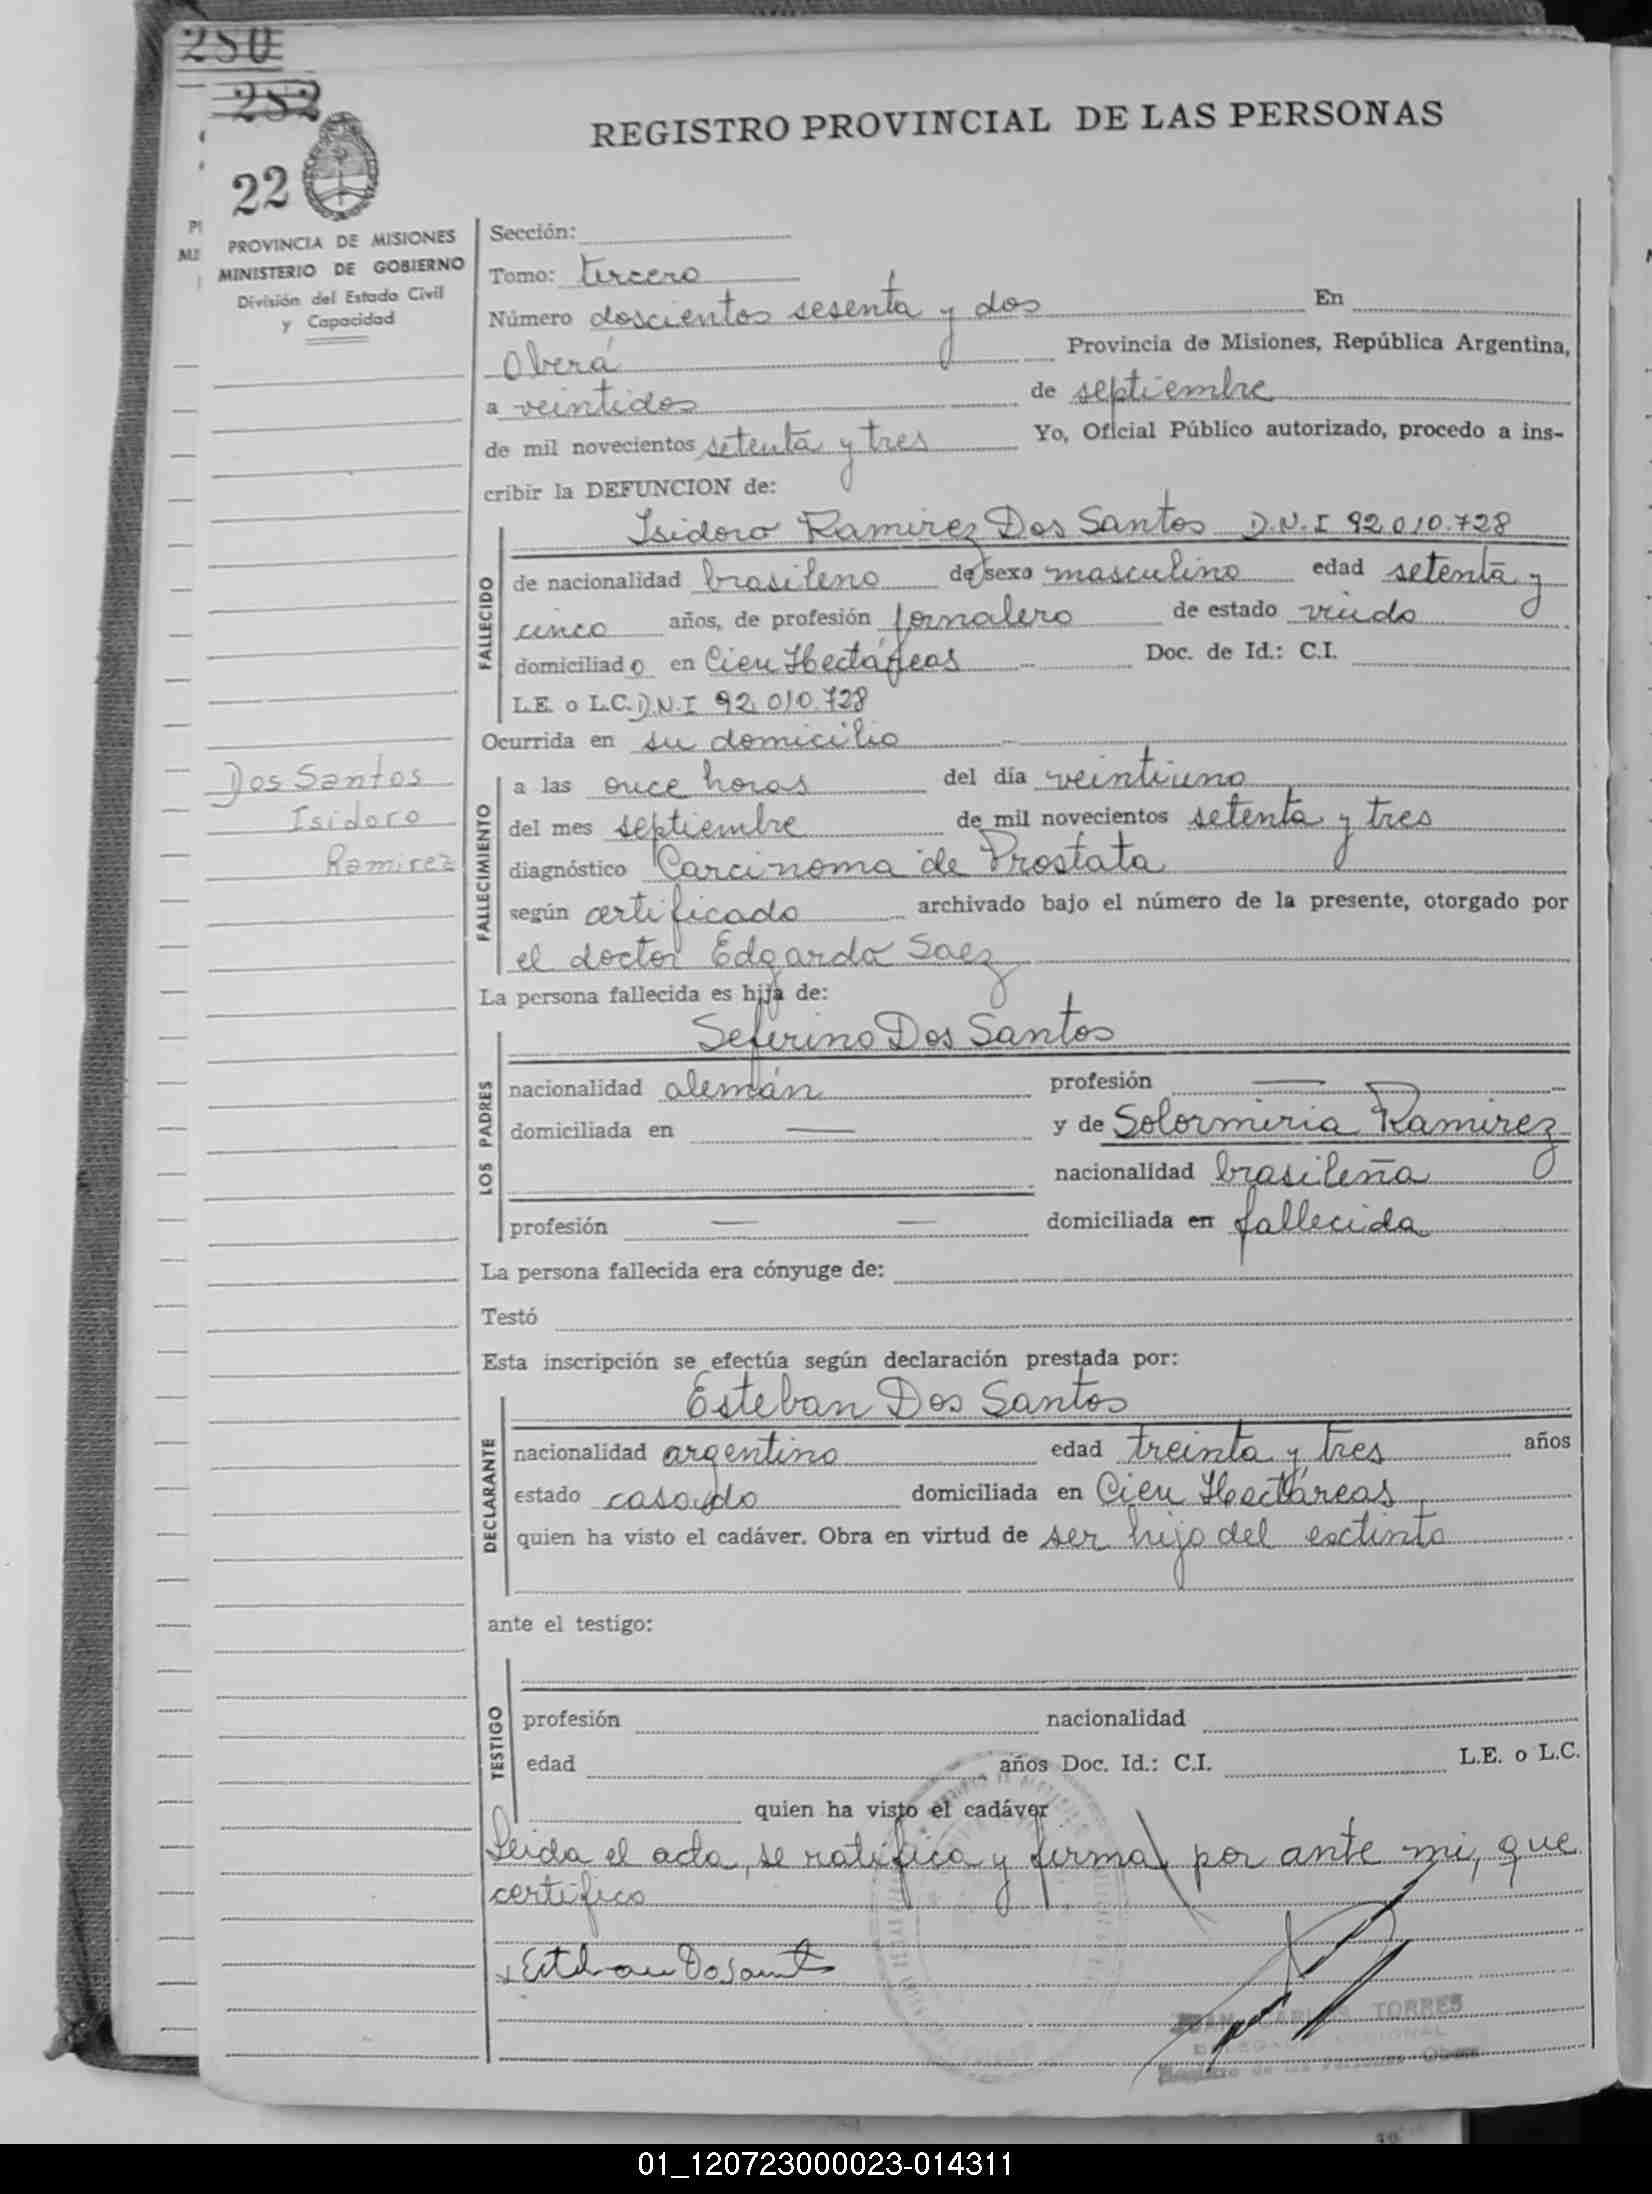 280
282
22
REGISTRO PROVINCIAL DE LAS PERSONAS
PROVINCIA DE MISIONES
MINISTERIO DE GOBIERNO
División del Estado Civil
y Capacidad
Dos Santos
Isidoro
Ramirez
Sección:
Tomo: tercero
Número doscientos sesenta y dos En
Oberá Provincia de Misiones, República Argentina,
a veintidos de septiembre
de mil novecientos setenta y tres Yo, Oficial Público autorizado, procedo a ins-
cribir la DEFUNCION de:
FALLECIDO
Isidoro Ramirez Dos Santos D.N.I 92.010.728
de nacionalidad brasileno de sexo masculino edad setenta y
cinco años, de profesión jornalero de estado viudo
domiciliado en Cien Hectáreas Doc. de Id.: C.I.
L.E. o L.C. D.N.I 92.010.728
Ocurrida en su domicilio
FALLECIMIENTO
a las once horas del día veintiuno
del mes septiembre de mil novecientos setenta y tres
diagnóstico Carcinoma de Prostata
según certificado archivado bajo el número de la presente, otorgado por
el doctor Edgardo Saez
La persona fallecida es hija de:
LOS PADRES
Seferino Dos Santos
nacionalidad alemán profesión —
domiciliada en — y de Solormiria Ramirez
nacionalidad brasileña
profesión — — domiciliada en fallecida
La persona fallecida era cónyuge de:
Testó
Esta inscripción se efectúa según declaración prestada por:
DECLARANTE
Esteban Dos Santos
nacionalidad argentino edad treinta y tres años
estado casado domiciliada en Cien Hectáreas
quien ha visto el cadáver. Obra en virtud de ser hijo del extinto
ante el testigo:
TESTIGO
profesión nacionalidad
edad años Doc. Id.: C.I. L.E. o L.C.
quien ha visto el cadáver
Leida el acta, se ratifica y firma por ante mi, que
certifico
Esteban Dosantos
JUAN CARLOS TORRES
01_120723000023-014311